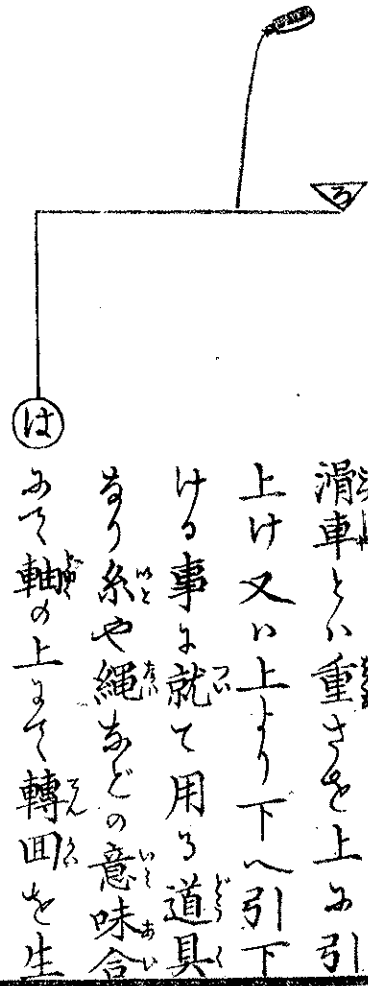 ろ
は
滑車とハ重さを上に引
上け又ハ上より下へ引下
ける事に就て用る道具
なり糸や縄などの意味合
にて軸の上にて轉囬を生